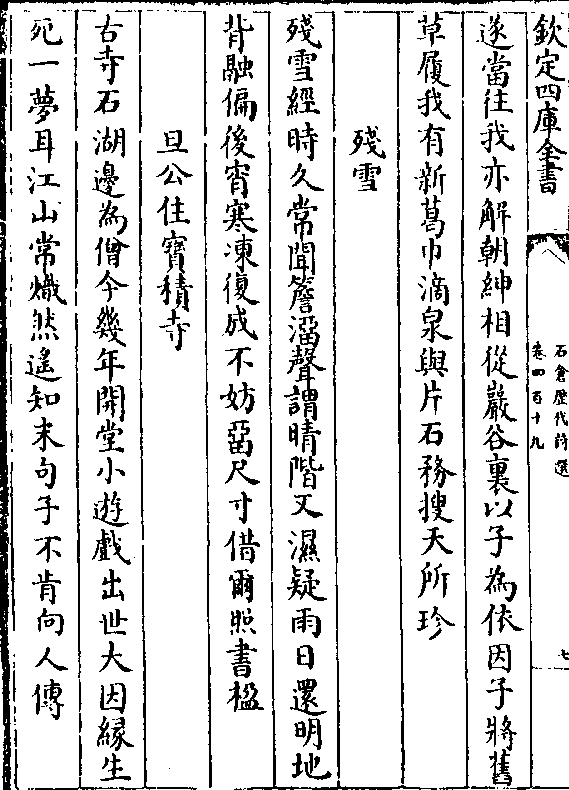 欽定四庫全書
石倉歷代詩選
卷四百十九
七
遂當往我亦解朝紳相從巖谷裏以子為依因子將舊
草履我有新葛巾滴泉與片石務搜天所珍
殘雪
殘雪經時久常聞簷溜聲謂晴階又濕疑雨日還明地
背融偏後宵寒凍復成不妨留尺寸借爾照書楹
旦公住寶積寺
古寺石湖邊為僧今幾年開堂小遊戲出世大因緣生
死一夢耳江山常熾然遙知末句子不肯向人傳